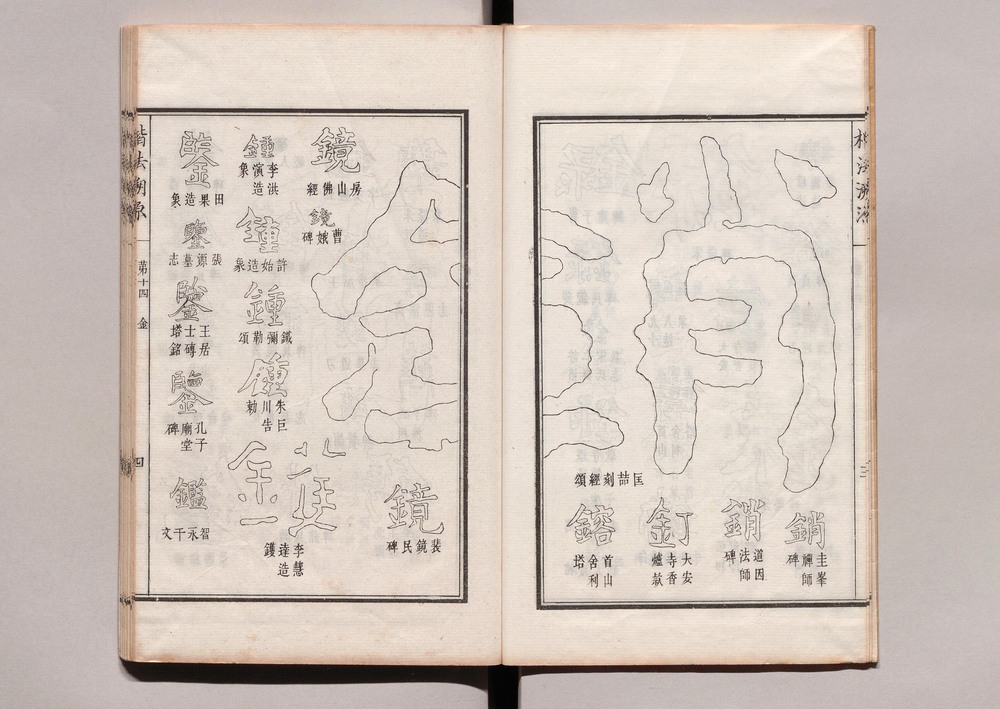 楷法溯源
銷
圭峯禪師碑
銷
道因法師碑
釘
大安寺香爐款
匡喆刻經頌
鎔
首山舍利塔
鏡
裴鏡民碑
鏡
房山佛經
鏡
曹娥碑
李慧達造鑊
鍾
李洪演造象
鍾
許始造象
鍾
鐵彌勒頌
鍾
朱巨川告勅
鑒
田果造象
鑒
張源墓志
鑒
王居士磚塔銘
鑒
孔子廟堂碑
鑑
智永千文
楷法溯源
第十四 金
四